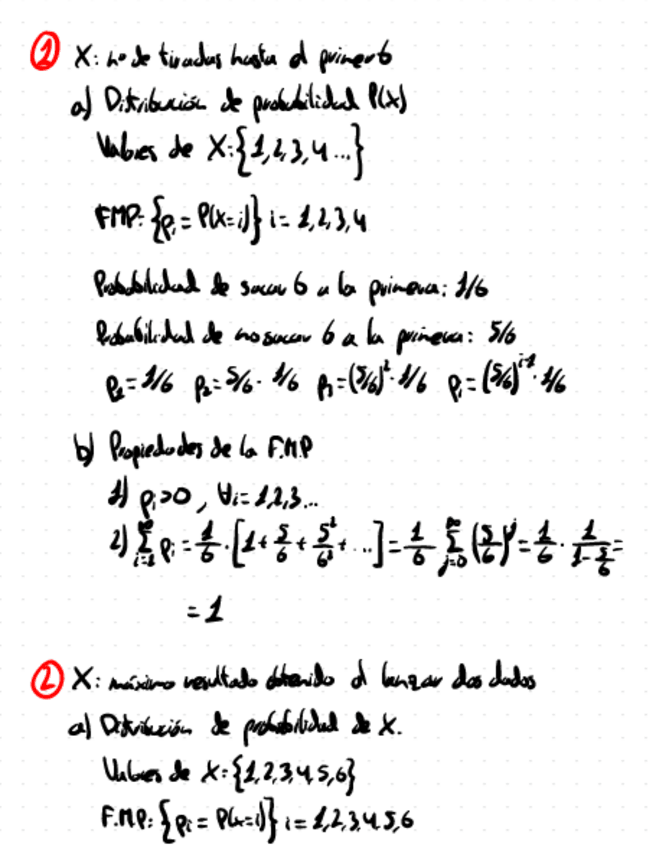 ① X: nº de tiradas hasta el primer 6
a) Distribución de probabilidad P(X)
Valores de X: {1, 2, 3, 4 ...}
FMP: {pᵢ = P(X=i)} i = 1, 2, 3, 4
Probabilidad de sacar 6 a la primera: 1/6
Probabilidad de no sacar 6 a la primera: 5/6
p₁ = 1/6 p₂ = 5/6 · 1/6 p₃ = (5/6)² · 1/6 pᵢ = (5/6)ⁱ⁻¹ · 1/6
b) Propiedades de la F.M.P
1) pᵢ > 0, ∀i = 1, 2, 3...
2) ∑_{i=1}^{∞} pᵢ = 1/6 · [1 + 5/6 + 5²/6² + ...] = 1/6 ∑_{j=0}^{∞} (5/6)ʲ = 1/6 · 1/(1 - 5/6) =
= 1
② X: máximo resultado obtenido al lanzar dos dados
a) Distribución de probabilidad de X.
Valores de X: {1, 2, 3, 4, 5, 6}
F.M.P: {pᵢ = P(X=i)} i = 1, 2, 3, 4, 5, 6